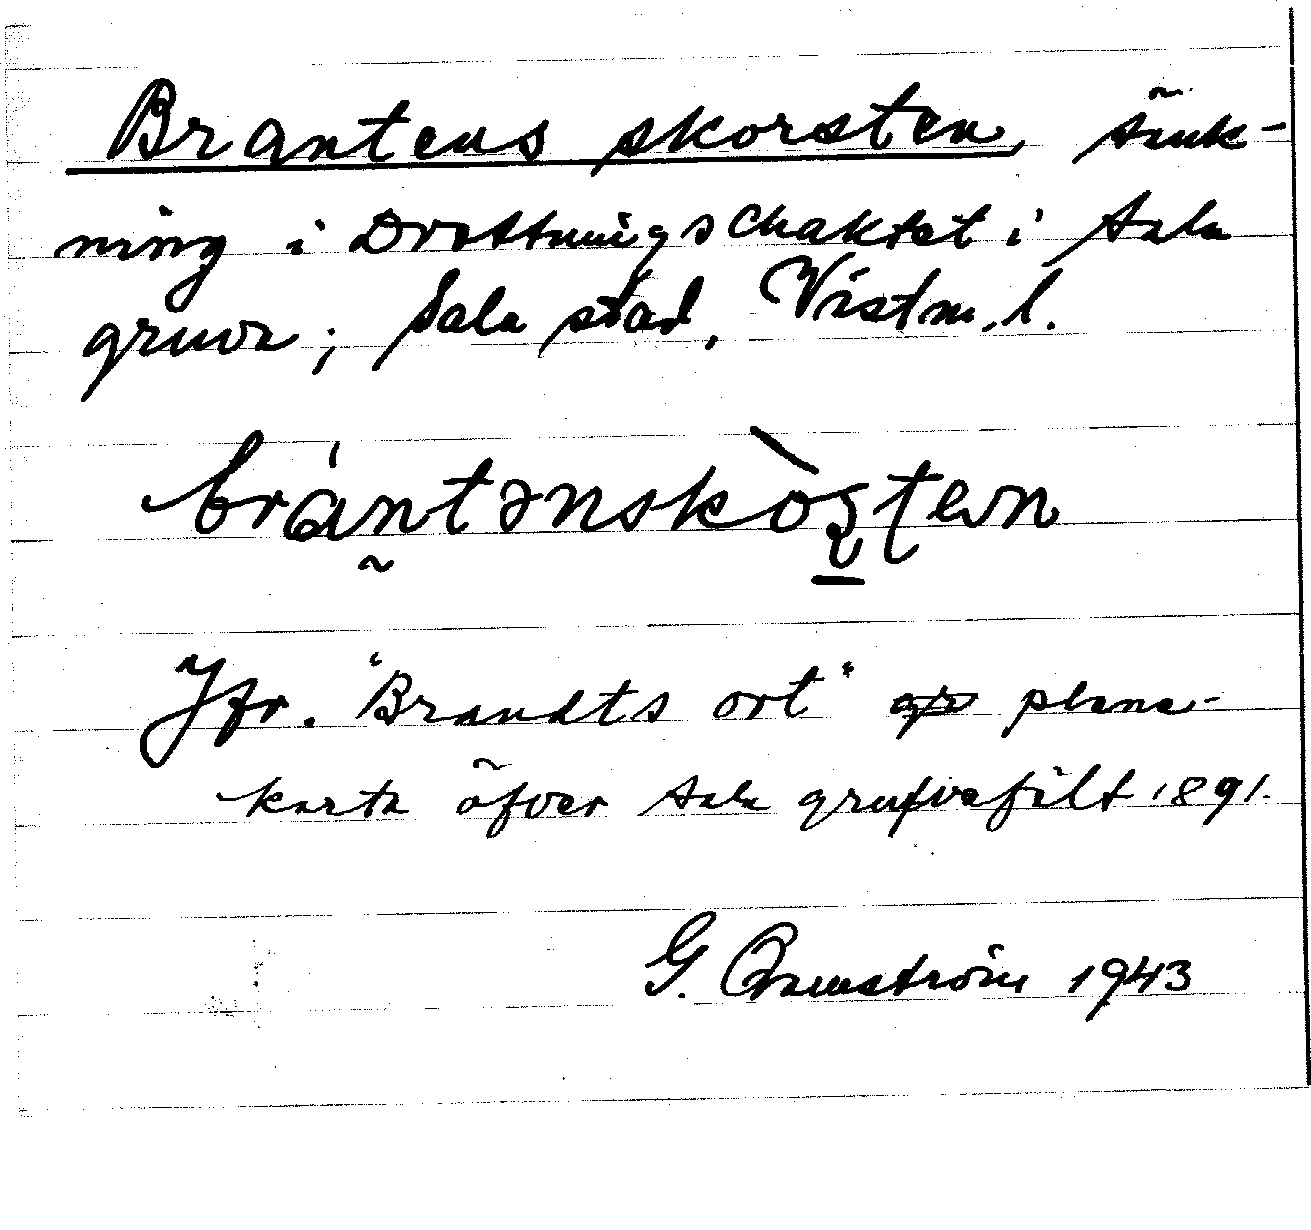 Brantens skorsten, sänk-
ning i Drottningschaktet i Sala
gruva; Sala stad, Västm. l.
brántənskòʂʈen
Jfr. "Brandts ort" plana-
karta öfver Sala grufvefält 1891.
G. 1943